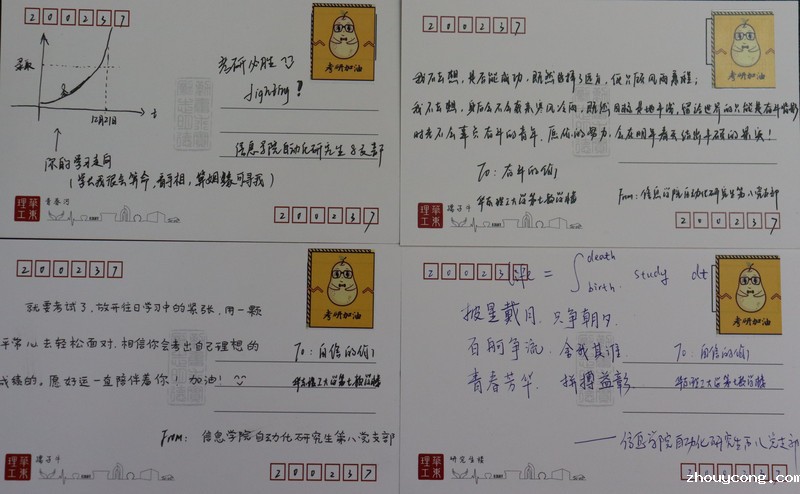 200237
考研加油
考研必胜
fighting!
12月21日
t
你的学习走向
信息学院自动化研究生8支部
华东理工
青春河
200237
考研加油
我不去想,是否能成功,既然选择了远方,便只顾风雨兼程;
我不去想,身后会不会袭来寒风冷雨,既然目标是地平线,留给世界的只能是背影
时光不会辜负奋斗的青年,愿你的努力,会在明年春天结出丰硕的果实!
To: 奋斗的你们
From: 信息学院自动化研究生第八党支部
华东理工
孺子牛
200237
200237
考研加油
就要考试了,放开往日学习中的紧张,用一颗
平常心去轻松面对.相信你会考出自己理想的
成绩的。愿好运一直陪伴着你!加油!
To: 自信的你们
From: 信息学院自动化研究生第八党支部
华东理工
孺子牛
200237
Life = ∫ death birth study dt
考研加油
披星戴月,只争朝夕
百舸争流,舍我其谁
青春芳华,拼搏益彰
To: 自信的你们
——信息学院自动化研究生第八党支部
华东理工
研究生楼
200237
zhouycong.com